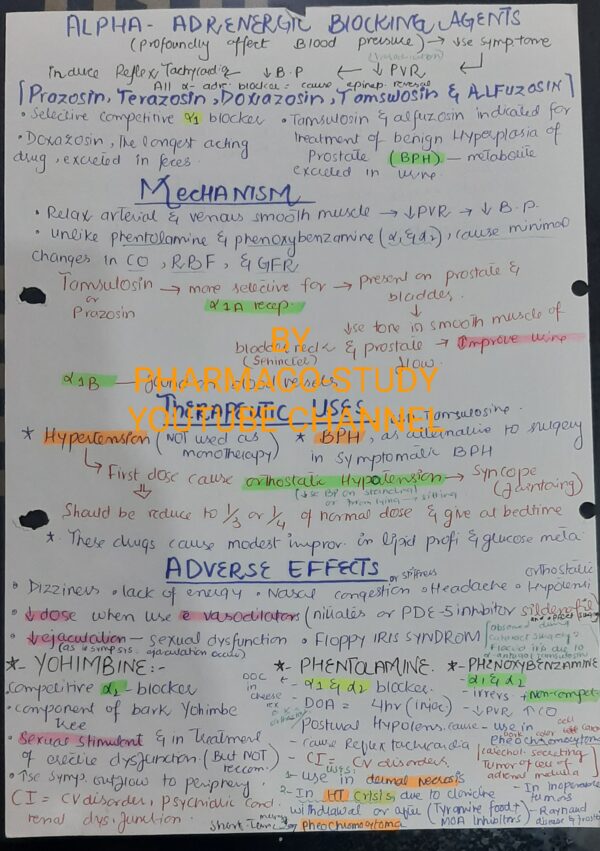 ALPHA - ADRENERGIC BLOCKING AGENTS
(Profoundly affect Blood pressure) → ↓se symp. tone
induce Reflex Tachycardia ← ↓B.P ← ↓PVR ↵
All α- adr. blocker = cause epinep. reversal
[Prazosin, Terazosin, Doxazosin, Tamsulosin & ALFUZOSIN]
• Selective competitive α1 blocker
• Doxazosin, The longest acting
drug, excreted in feces.
• Tamsulosin & alfuzosin indicated for
treatment of benign Hyperplasia of
Prostate (BPH) — metabolite
excreted in urine
MECHANISM
• Relax arterial & venous smooth muscle → ↓PVR → ↓B.P.
• unlike phentolamine & phenoxybenzamine (α1 & α2), cause minimal
changes in CO, RBF, & GFR
Tamsulosin → more selective for → Present on prostate &
or
Prazosin
α1A recep.
bladder.
↓
↓se tone in smooth muscle of
bladder neck & prostate → Improve urine
(Sphincter)
flow.
α1B — found on blood vessels
BY
PHARMACO STUDY
YOUTUBE CHANNEL
THERAPEUTIC USES
Tamsulosine.
* Hypertension (NOT used as
monotherapy)
* BPH, as alternative to surgery
in symptomatic BPH
↳ First dose cause orthostatic Hypotension → Syncope
(↓se BP on standing
or from lying → sitting
(fainting)
⇓
Should be reduce to 1/3 or 1/4 of normal dose & give at bedtime
* These drugs cause modest improv. in lipid profi & glucose meta.
ADVERSE EFFECTS
• Dizziness • lack of energy • Nasal congestion • Headache • Orthostatic
or stuffiness
Hypotensi
• ↓dose when use c vasodilators (nitrates or PDE-5 inhibitor sildenafil
• ↓ejaculation — sexual dysfunction • FLOPPY IRIS SYNDROM
(as symp. is ejaculation occur)
observed during
cataract surgery
Flaccid iris due to
*- YOHIMBINE:-
competitive α2 - blocker
• component of bark Yohimbe
tree
• Sexual stimulant & in treatment
of erectile dysfunction. (But NOT
reccom.
• ↑se symp. outflow to periphery
CI = CV disorder, psychiatric cond.
renal dysfunction.
*- PHENTOLAMINE.
DOC
in
cheese
- α1 & α2 blocker.
- DOA = 4hr (injec)
- Postural Hypotens. cause
cause Reflex tachycardia
- CI = CV disorders.
USES:
1- use in dermal necrosis
2- In HT Crisis due to clonidine
withdrawal or after (Tyramine food +
MOA Inhibitors)
short-term
pheochromocytoma
*- PHENOXYBENZAMINE
- α1 & α2
- irrers. + non-compet
- ↓PVR, ↑CO
- use in
Pheochromocytoma
catechol. secreting
Tumor of
adrenal medulla
- In inoperable
tumors
- Raynaud
disease &